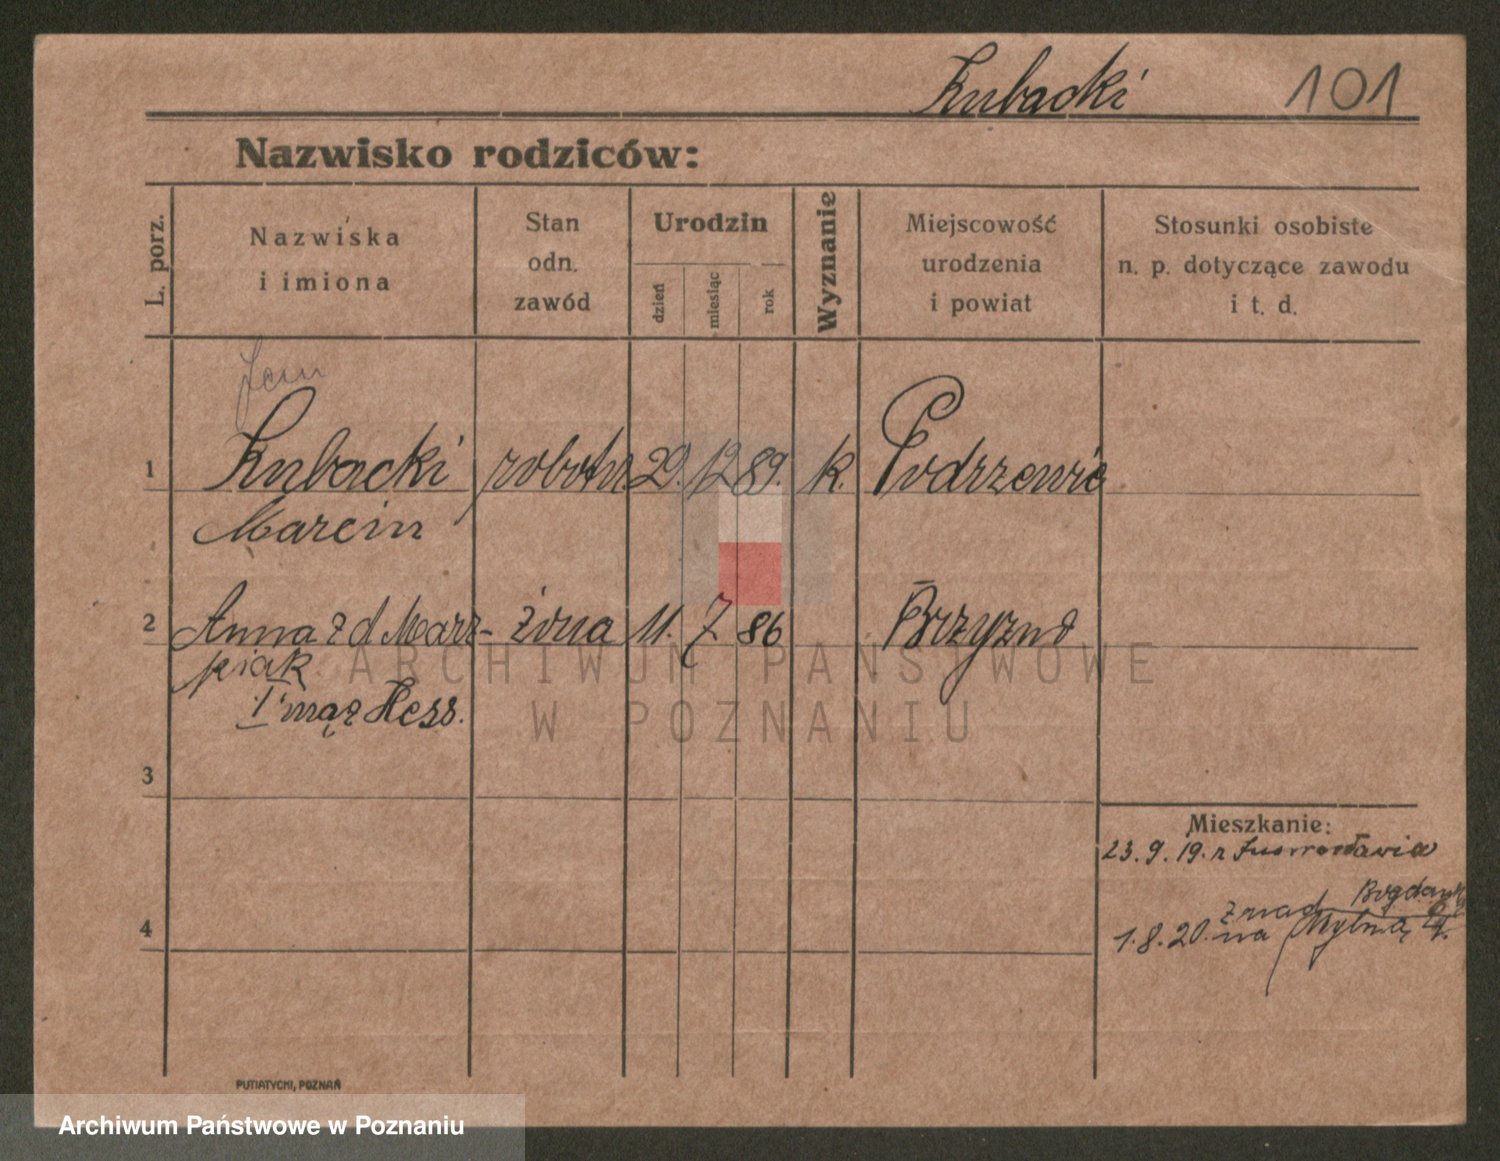 Kubacki 101
Nazwisko rodziców:
L. porz.
Nazwiska
i imiona
Stan
odn.
zawód
Urodzin
dzień
miesiąc
rok
Wyznanie
Miejscowość
urodzenia
i powiat
Stosunki osobiste
n. p. dotyczące zawodu
i t. d.
1 Kubacki robotn 29. 12 89. k. Podrzewie
Marcin
2 Anna z d Marz- żona 11. 7 86
piak
I mąż Hess.
3
4
Mieszkanie:
23. 9. 19. z Inowrocławia
1. 8. 20. na
PUTIATYCKI, POZNAŃ
ARCHIWUM PAŃSTWOWE
W POZNANIU
Archiwum Państwowe w Poznaniu